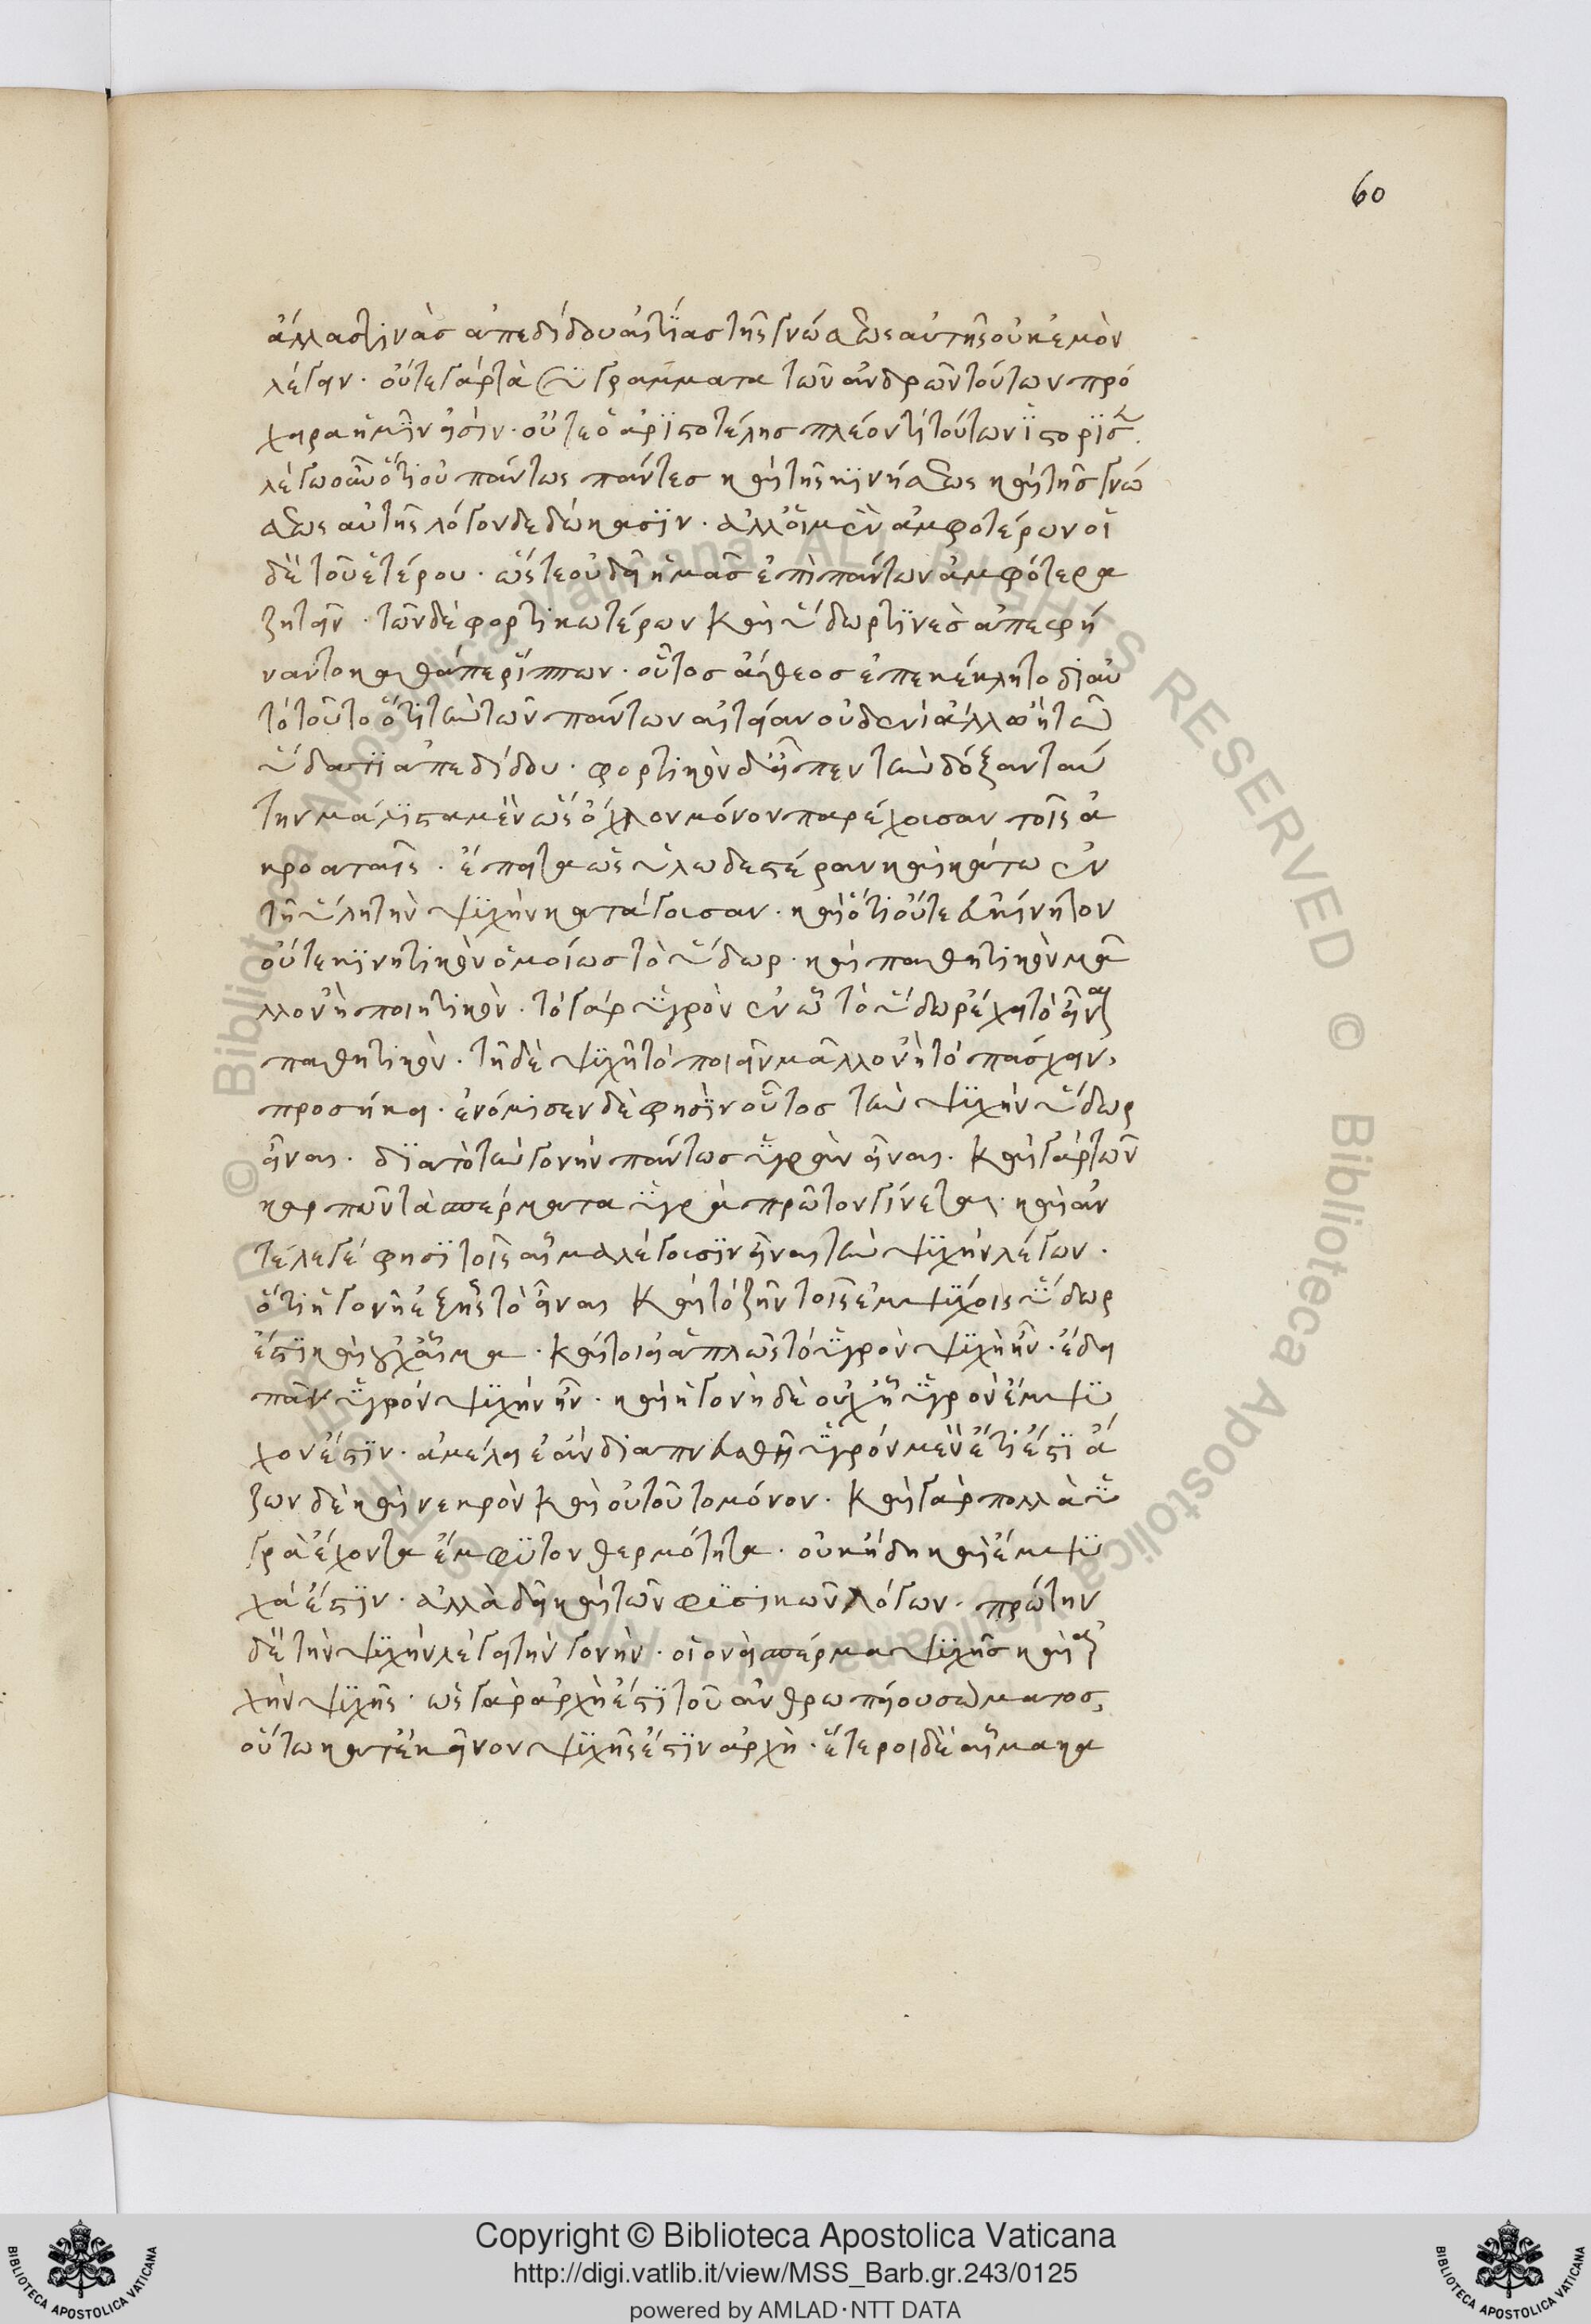 60
ἄλλας τινὰς ἀπεδίδου αἰτίας τῆς γνώσεως αὐτῆς οὐκ ἐμὸν
λέγειν· οὔτε γὰρ τὰ συγγράμματα τῶν ἀνδρῶν τούτων πρό
χειρα ἡμῖν εἰσίν· οὔτε ὁ ἀριστοτέλης πλέον τι τούτων ἱστορησ
λέγω οὖν ὅτι οὐ πάντως πάντες καὶ τῆς κινήσεως καὶ τῆς γνώ
σεως αὐτῆς λόγον δεδώκασιν· ἀλλ' οἱ μὲν ἀμφοτέρων οἱ
δὲ τοῦ ἑτέρου· ὥστε οὐ δεῖ ἡμᾶς ἐπὶ πάντων ἀμφότερα
ζητεῖν· τῶν δὲ φορτικωτέρων καὶ ὕδωρ τινὲς ἀπεφή
ναντο καθάπερ ἵππων· οὗτος ἄθεος ἐπεκέκλητο δι' αὐ
τὸ τοῦτο ὅτι τὴν τῶν πάντων αἰτίαν οὐδενὶ ἄλλῳ ἢ τῷ
ὕδατι ἀπεδίδου· φορτικὴν δ' εἶπεν τὴν δόξαν ταύ
την μάλιστα μὲν ὡς ὄχλον μόνον παρέχουσαν τοῖς ἀ
κροαταῖς· ἔπειτα ὡς ὑλωδεστέραν καὶ κάτω ἐν
τῇ ὕλῃ τὴν ψυχὴν κατάγουσαν· καὶ ὅτι οὔτε εὐκίνητον
οὔτε κινητικὸν ὁμοίως τὸ ὕδωρ· καὶ παθητικὸν μᾶ
λλον ἢ ποιητικόν· τὸ γὰρ ὑγρὸν ἐν ᾧ τὸ ὕδωρ ἔχει τὸ εἶναι
παθητικόν· τῇ δὲ ψυχῇ τὸ ποιεῖν μᾶλλον ἢ τὸ πάσχειν,
προσήκει· ἐνόμισεν δὲ φησὶν οὗτος τὴν ψυχὴν ὕδωρ
εἶναι· διὰ τὸ τὴν γονὴν πάντως ὑγρὰν εἶναι· καὶ γὰρ τῶν
καρπῶν τὰ σπέρματα ὑγρὰ πρῶτον γίνεται· καὶ ἀν
τέλεγέ φησι τοῖς αἷμα λέγουσιν εἶναι τὴν ψυχὴν λέγων·
ὅτι ἡ γονὴ ἐξ ἧς τὸ εἶναι καὶ τὸ ζῆν τοῖς ἐμψύχοις ὕδωρ
ἐστὶ καὶ οὐχ αἷμα· καίτοι εἰ ἁπλῶς τὸ ὑγρὸν ψυχὴ ἦν· ἔδει
πᾶν ὑγρόν ψυχὴν ἦν· καὶ ἡ γονὴ δὲ οὐχ ᾗ ὑγρὸν ἔμψυ
χον ἐστίν· ἀμέλει ἐὰν διαπνευσθῇ ὑγρόν μὲν ἔτι ἐστὶ ἄ
ζων δὲ καὶ νεκρὸν καὶ οὐ τοῦτο μόνον· καὶ γὰρ πολλὰ ὑ
γρὰ ἔχοντα ἔμφυτον θερμότητα· οὐκ ἤδη καὶ ἔμψυ
χά ἐστιν· ἀλλὰ δεῖ καὶ τῶν φυσικῶν λόγων· πρώτην
δὲ τὴν ψυχὴν λέγει τὴν γονὴν· οἱονεὶ σπέρμα ψυχῆς καὶ ἀρ
χὴν ψυχῆς· ὡς γὰρ ἀρχὴ ἐστὶ τοῦ ἀνθρωπείου σώματος,
οὕτω κατ' ἐκεῖνον ψυχῆς ἐστὶν ἀρχὴ· ἕτεροι δὲ αἷμα κα
Copyright © Biblioteca Apostolica Vaticana
http://digi.vatlib.it/view/MSS_Barb.gr.243/0125
powered by AMLAD·NTT DATA